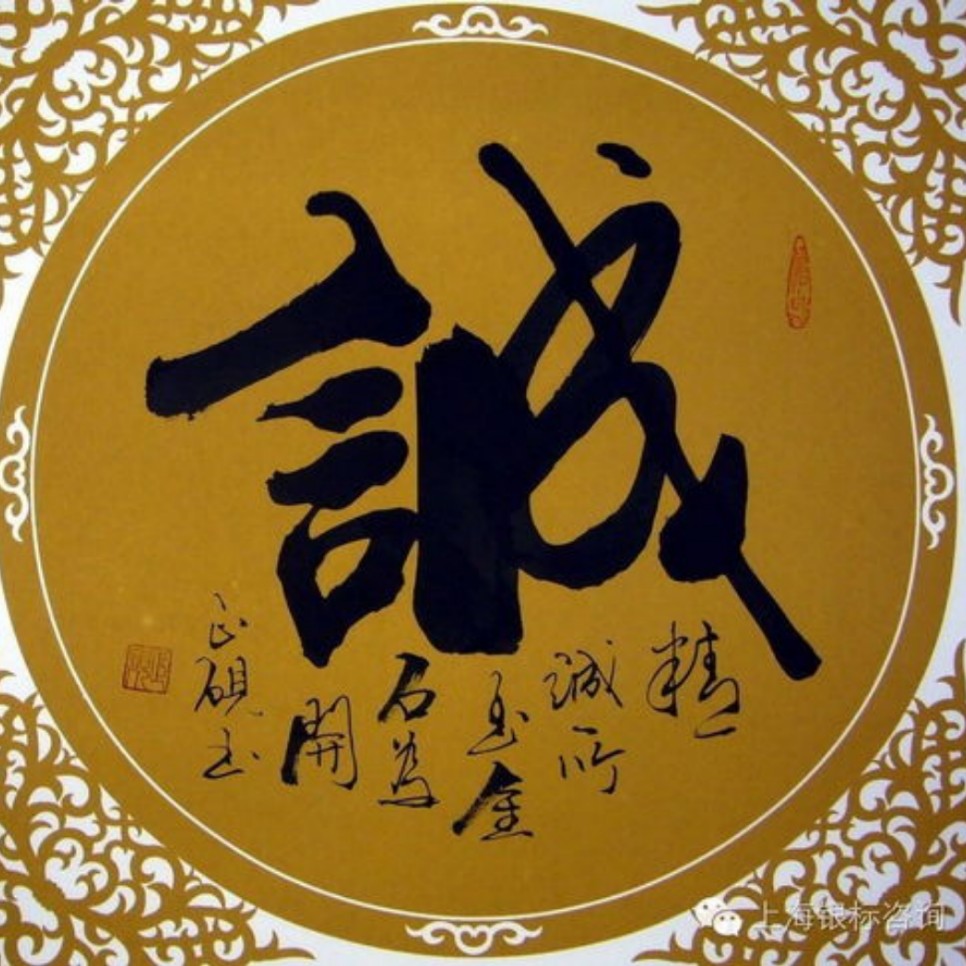 誠
精
誠所
至金
石為
開
正硯书
上海银标咨询